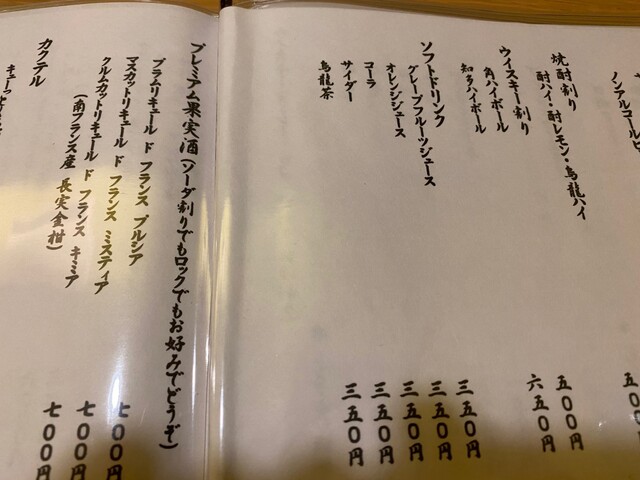 ノンアルコールビ
焼酎割り
酎ハイ・酎レモン・烏龍ハイ 五〇
ウイスキー割り
角ハイボール 五〇〇円
知多ハイボール 六五〇円
ソフトドリンク
グレープフルーツジュース 三五〇円
オレンジジュース 三五〇円
コーラ 三五〇円
サイダー 三五〇円
烏龍茶 三五〇円
プレミアム果実酒(ソーダ割りでもロックでもお好みでどうぞ)
プラムリキュール ド フランス プルシア 七〇〇円
マスカットリキュール ド フランス ミスティア 七〇〇円
クルムカットリキュール ド フランス キミア 七〇〇円
(南フランス産 長実金柑)
カクテル